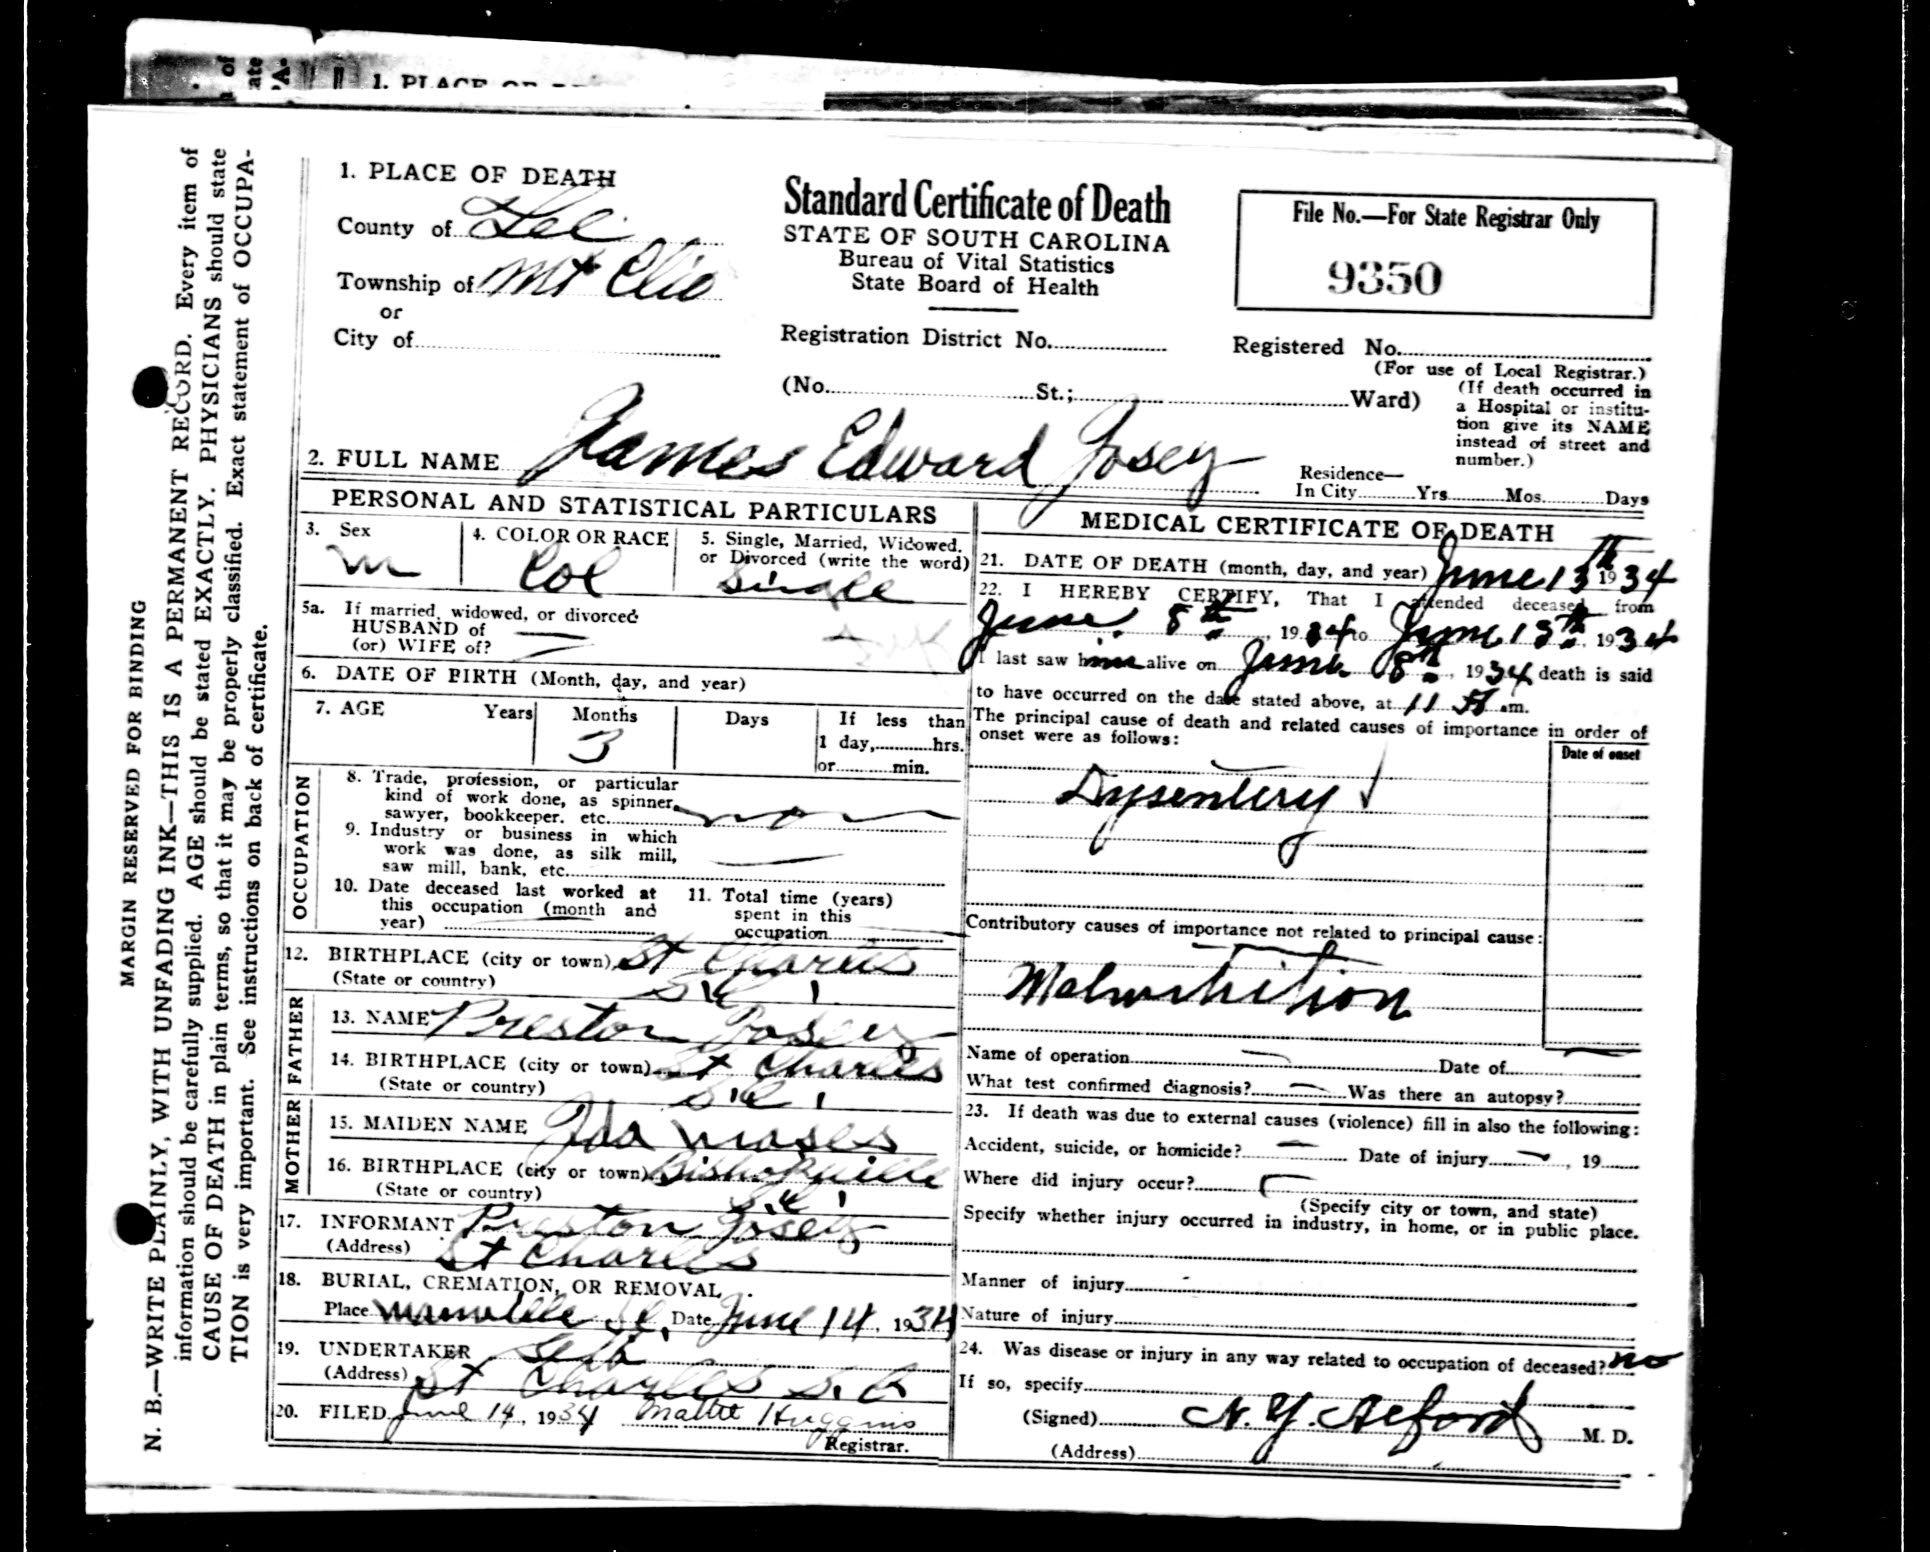 1. PLACE OF
MARGIN RESERVED FOR BINDING
N. B.—WRITE PLAINLY, WITH UNFADING INK—THIS IS A PERMANENT RECORD. Every item of
information should be carefully supplied. AGE should be stated EXACTLY. PHYSICIANS should state
CAUSE OF DEATH in plain terms, so that it may be properly classified. Exact statement of OCCUPA-
TION is very important. See instructions on back of certificate.
1. PLACE OF DEATH
County of Lee
Township of Mt Clio
or
City of
Standard Certificate of Death
STATE OF SOUTH CAROLINA
Bureau of Vital Statistics
State Board of Health
Registration District No.
(No. St.; Ward)
File No.—For State Registrar Only
9350
Registered No.
(For use of Local Registrar.)
(If death occurred in
a Hospital or institu-
tion give its NAME
instead of street and
number.)
2. FULL NAME James Edward Josey
Residence—
In City Yrs. Mos. Days
PERSONAL AND STATISTICAL PARTICULARS
3. Sex
m
4. COLOR OR RACE
Col
5. Single, Married, Widowed,
or Divorced (write the word)
Single
5a. If married, widowed, or divorced
HUSBAND of
(or) WIFE of?
6. DATE OF BIRTH (Month, day, and year)
7. AGE Years Months Days If less than
3 1 day, hrs.
or min.
OCCUPATION
8. Trade, profession, or particular
kind of work done, as spinner,
sawyer, bookkeeper. etc.
9. Industry or business in which
work was done, as silk mill,
saw mill, bank, etc.
10. Date deceased last worked at
this occupation (month and
year)
11. Total time (years)
spent in this
occupation
12. BIRTHPLACE (city or town) St Charles
(State or country) S.C.
FATHER
13. NAME Preston Josey
14. BIRTHPLACE (city or town) St Charles
(State or country) S.C.
MOTHER
15. MAIDEN NAME Ida Moses
16. BIRTHPLACE (city or town) Bishopville
(State or country) S.C.
17. INFORMANT Preston Josey
(Address) St Charles
18. BURIAL, CREMATION, OR REMOVAL
Place Manville SC, Date June 14, 1934
19. UNDERTAKER
(Address) St Charles S. C
20. FILED June 14, 1934 Mattie Huggins
Registrar.
MEDICAL CERTIFICATE OF DEATH
21. DATE OF DEATH (month, day, and year) June 13th 1934
22. I HEREBY CERTIFY, That I attended deceased from
June 8th, 1934 to June 13th, 1934
I last saw him alive on June 8th, 1934 death is said
to have occurred on the date stated above, at 11 A m.
The principal cause of death and related causes of importance in order of
onset were as follows:
Date of onset
Dysentery
Contributory causes of importance not related to principal cause:
Malnutrition
Name of operation Date of
What test confirmed diagnosis? Was there an autopsy?
23. If death was due to external causes (violence) fill in also the following:
Accident, suicide, or homicide? Date of injury , 19
Where did injury occur?
(Specify city or town, and state)
Specify whether injury occurred in industry, in home, or in public place.
Manner of injury
Nature of injury
24. Was disease or injury in any way related to occupation of deceased? no
If so, specify
(Signed) N. Y. Alford M. D.
(Address)